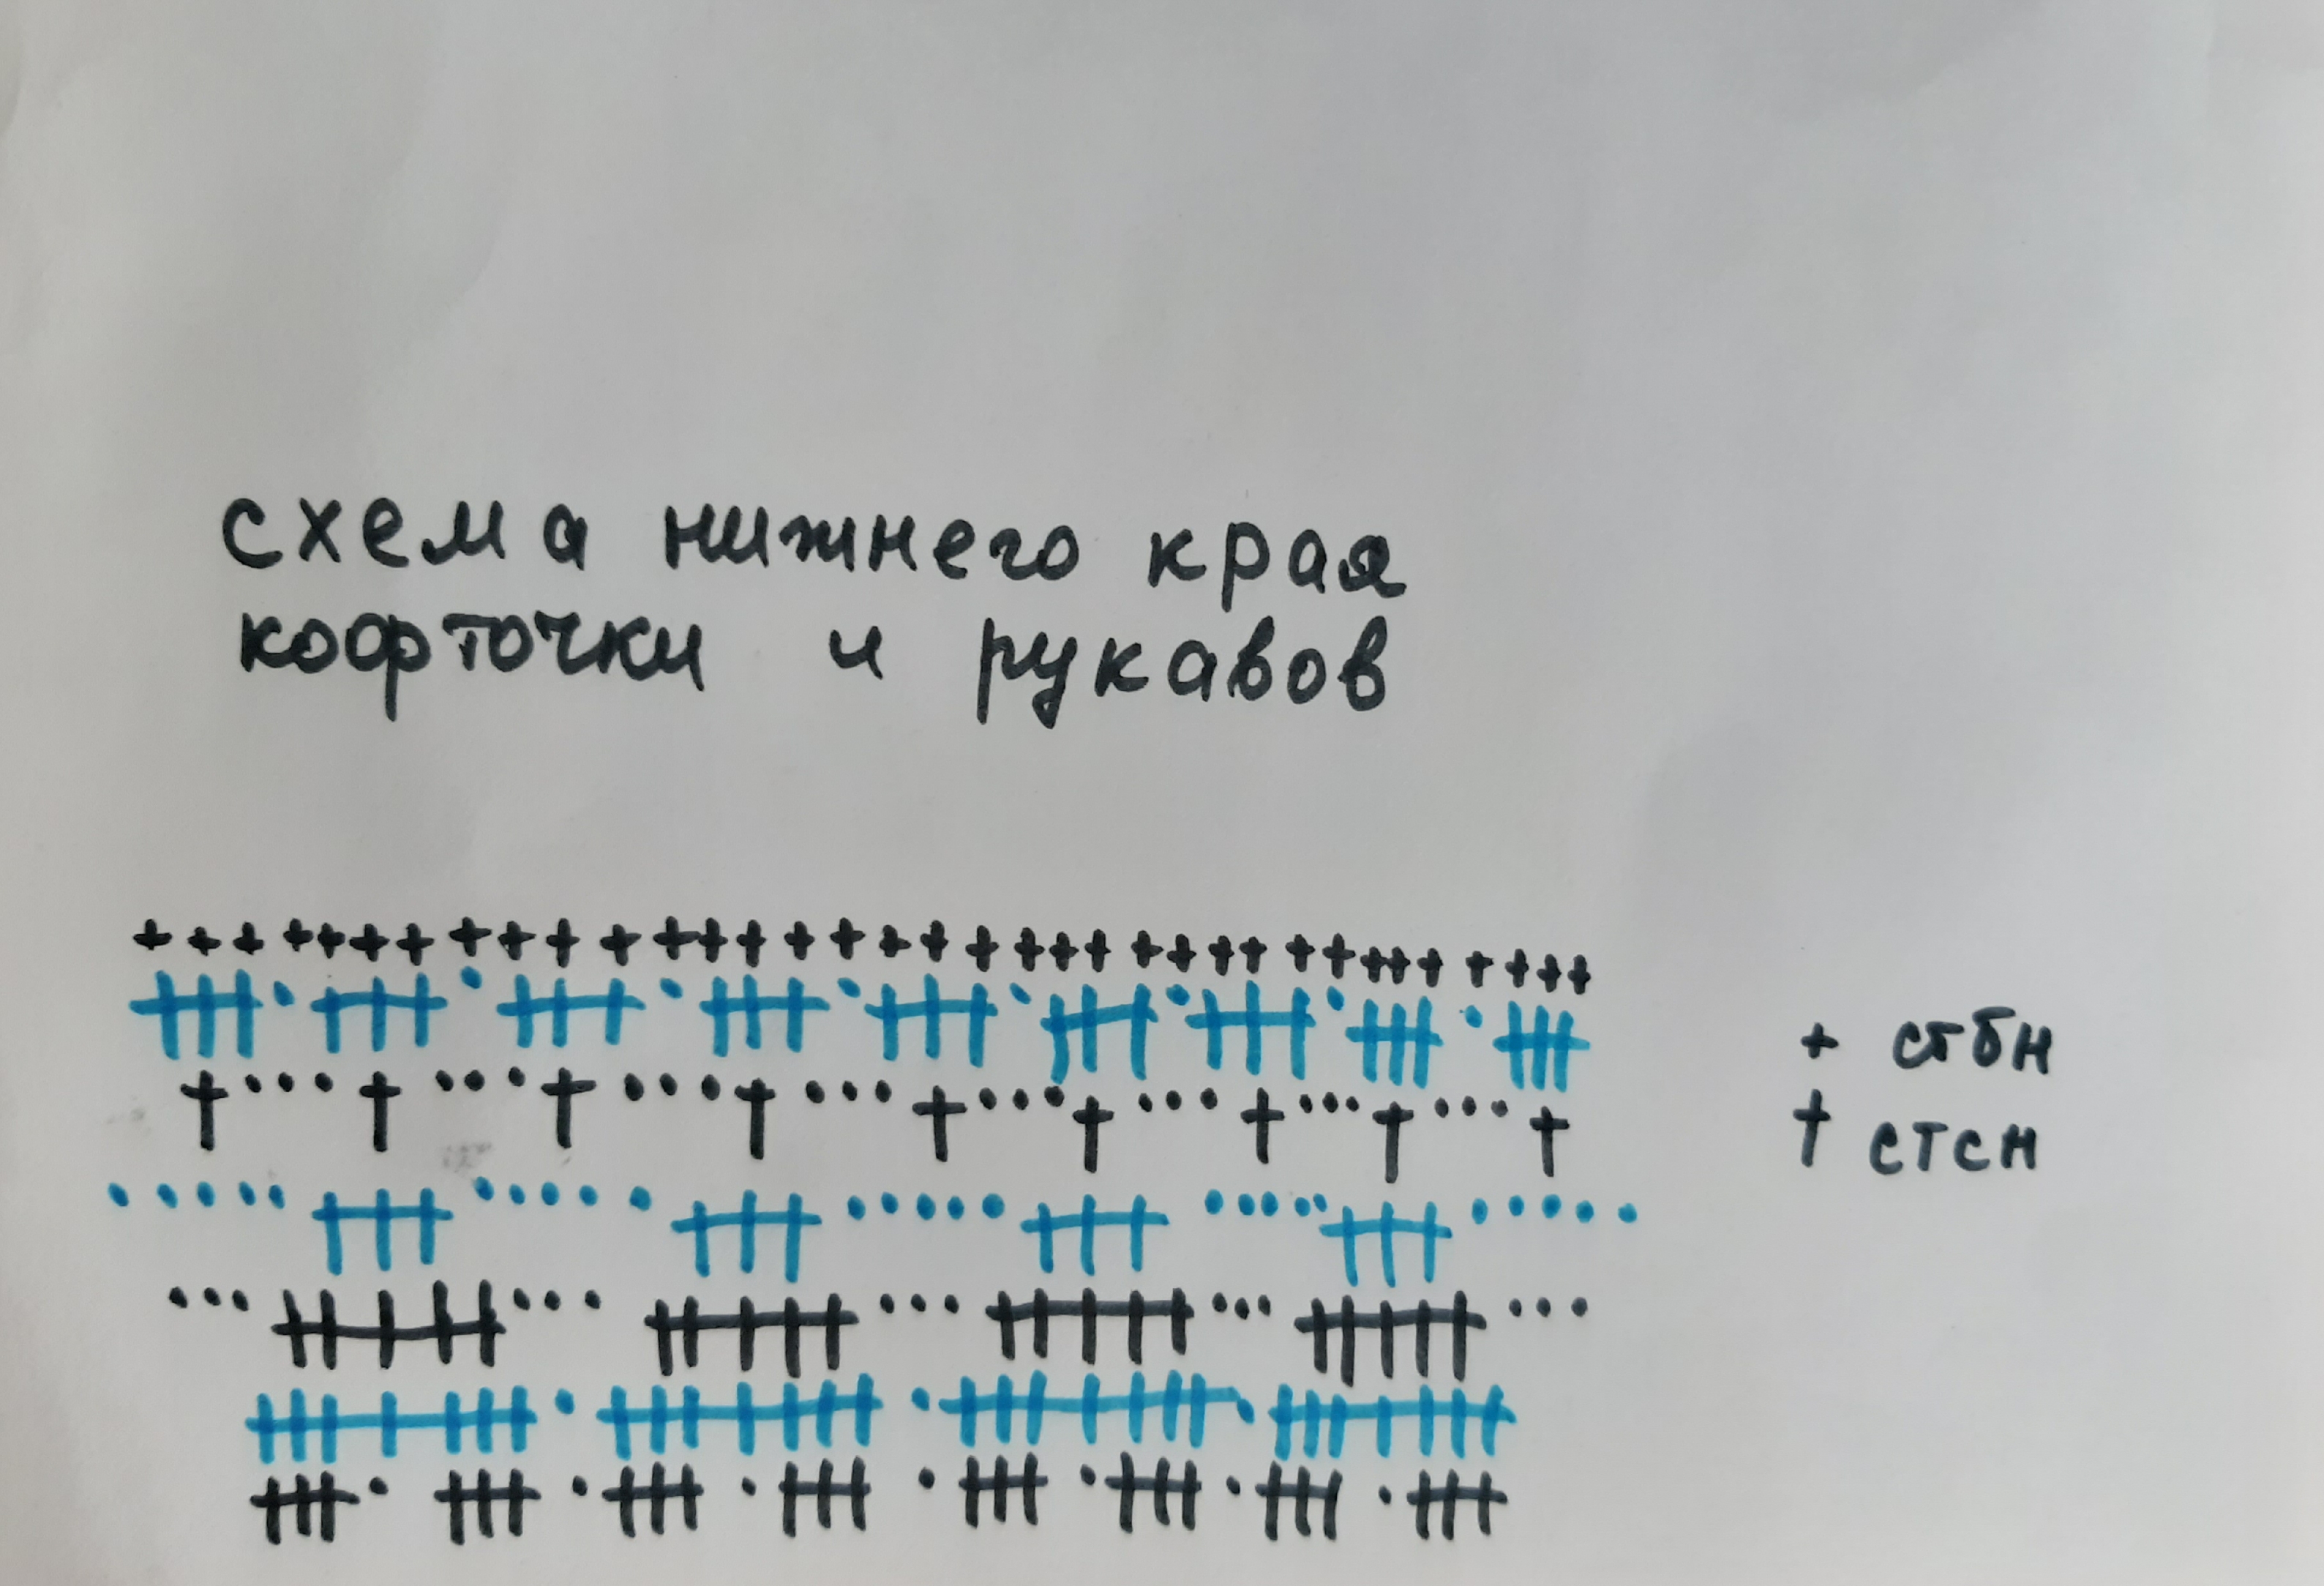 схема нижнего края
кофточки и рукавов
+ стбн
† стсн